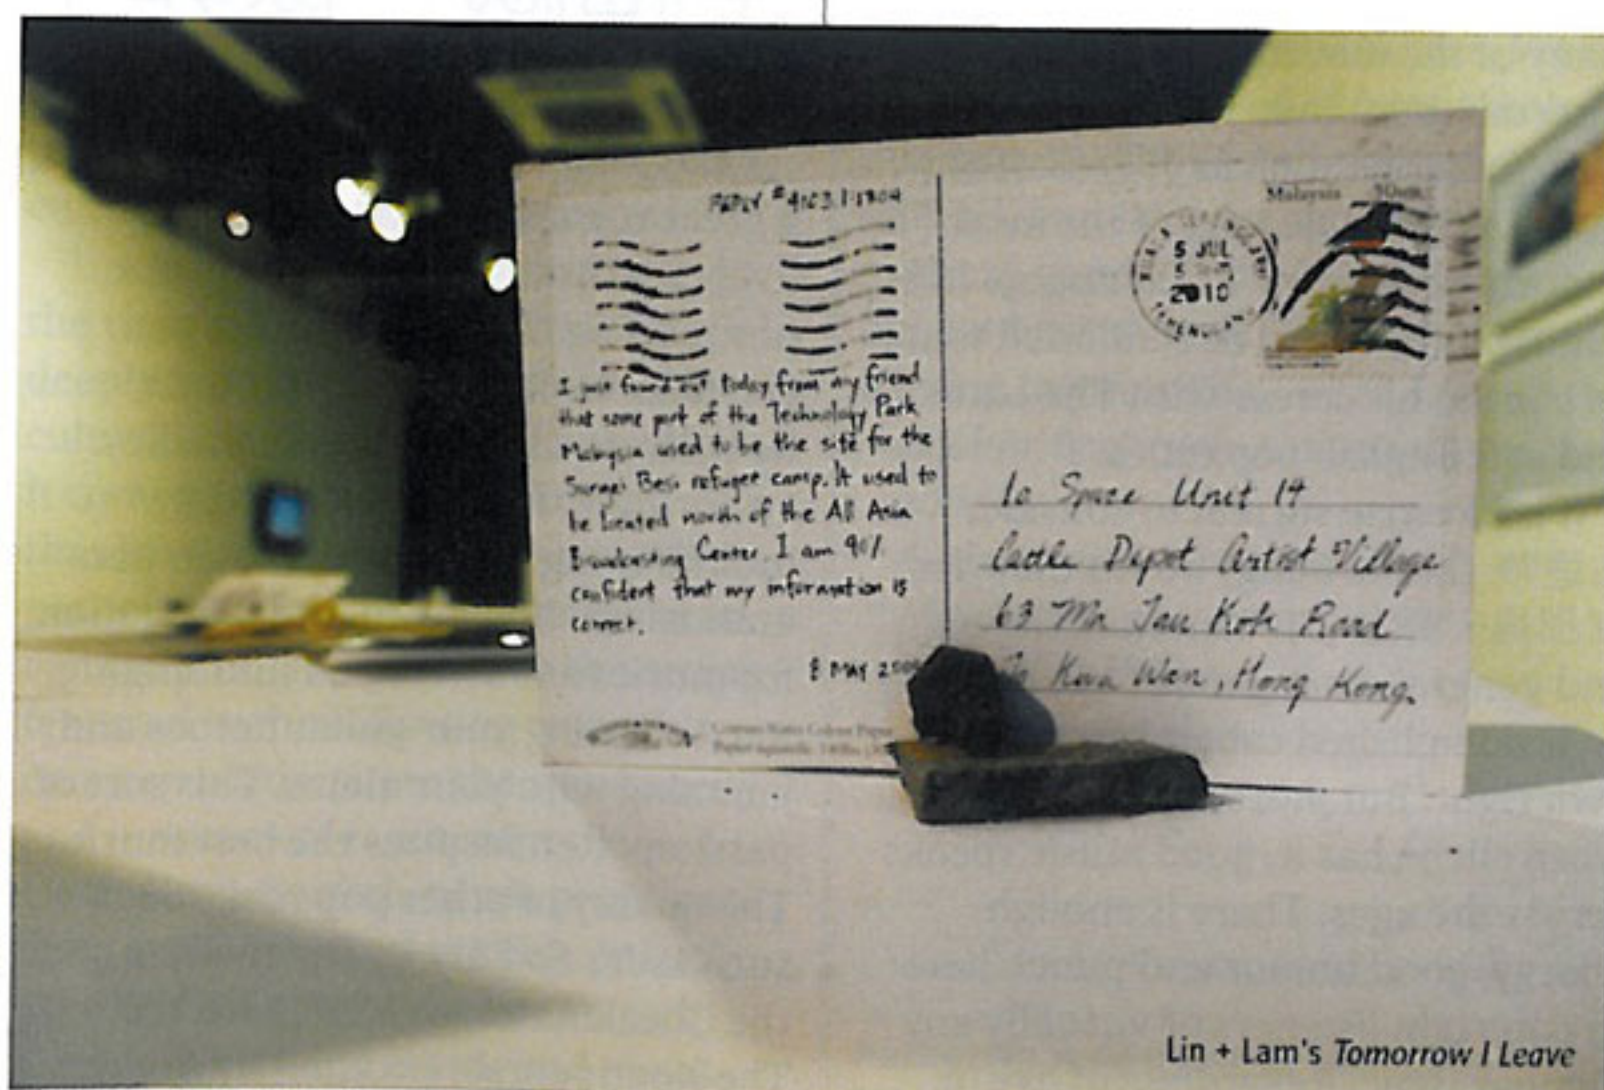 REPLY #4103.1.1804
I just found out today from my friend
that some part of the Technology Park
Malaysia used to be the site for the
Sungei Besi refugee camp. It used to
be located north of the All Asia
Broadcasting Center. I am 90%
confident that my information is
correct.
8 MAY
Malaysia 50sen
5 JUL
2010
1a Space Unit 14
Cattle Depot Artist Village
63 Ma Tau Kok Road
Kwa Wan, Hong Kong.
Lin + Lam's Tomorrow I Leave